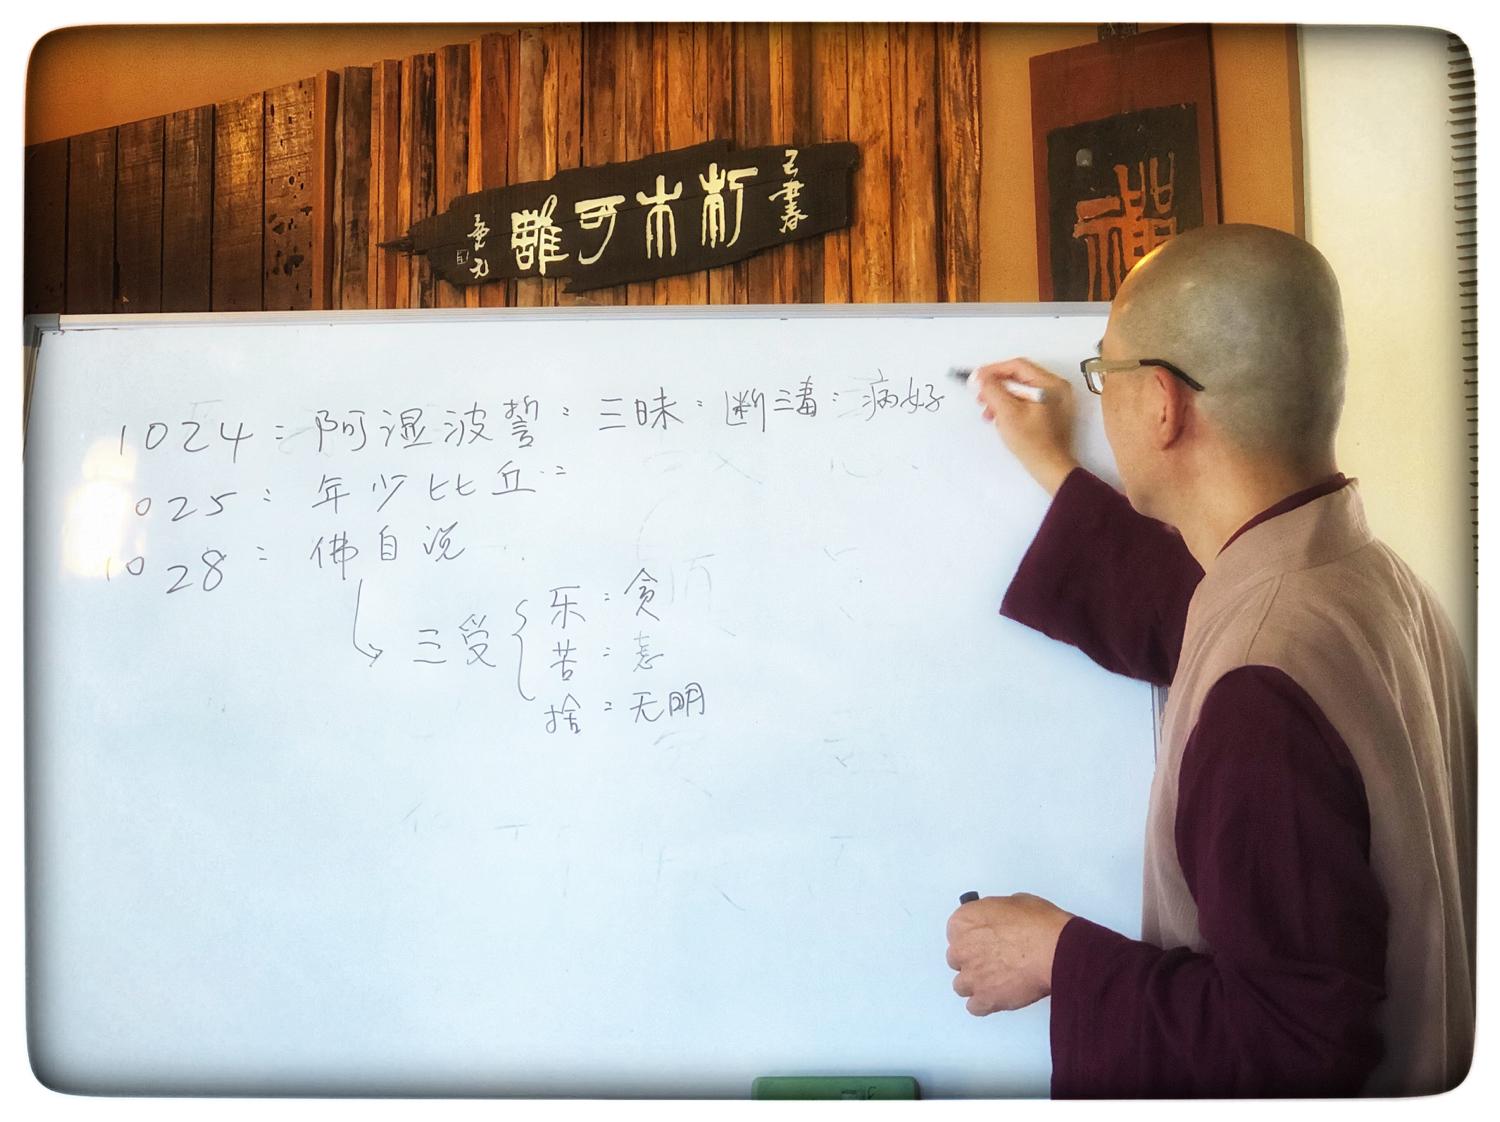 己丑春
朽木可雕
禅
1024：阿湿波誓：三昧：断三毒：病好
1025：年少比丘：
1028：佛自说
三受
乐：贪
苦：恚
捨：无明